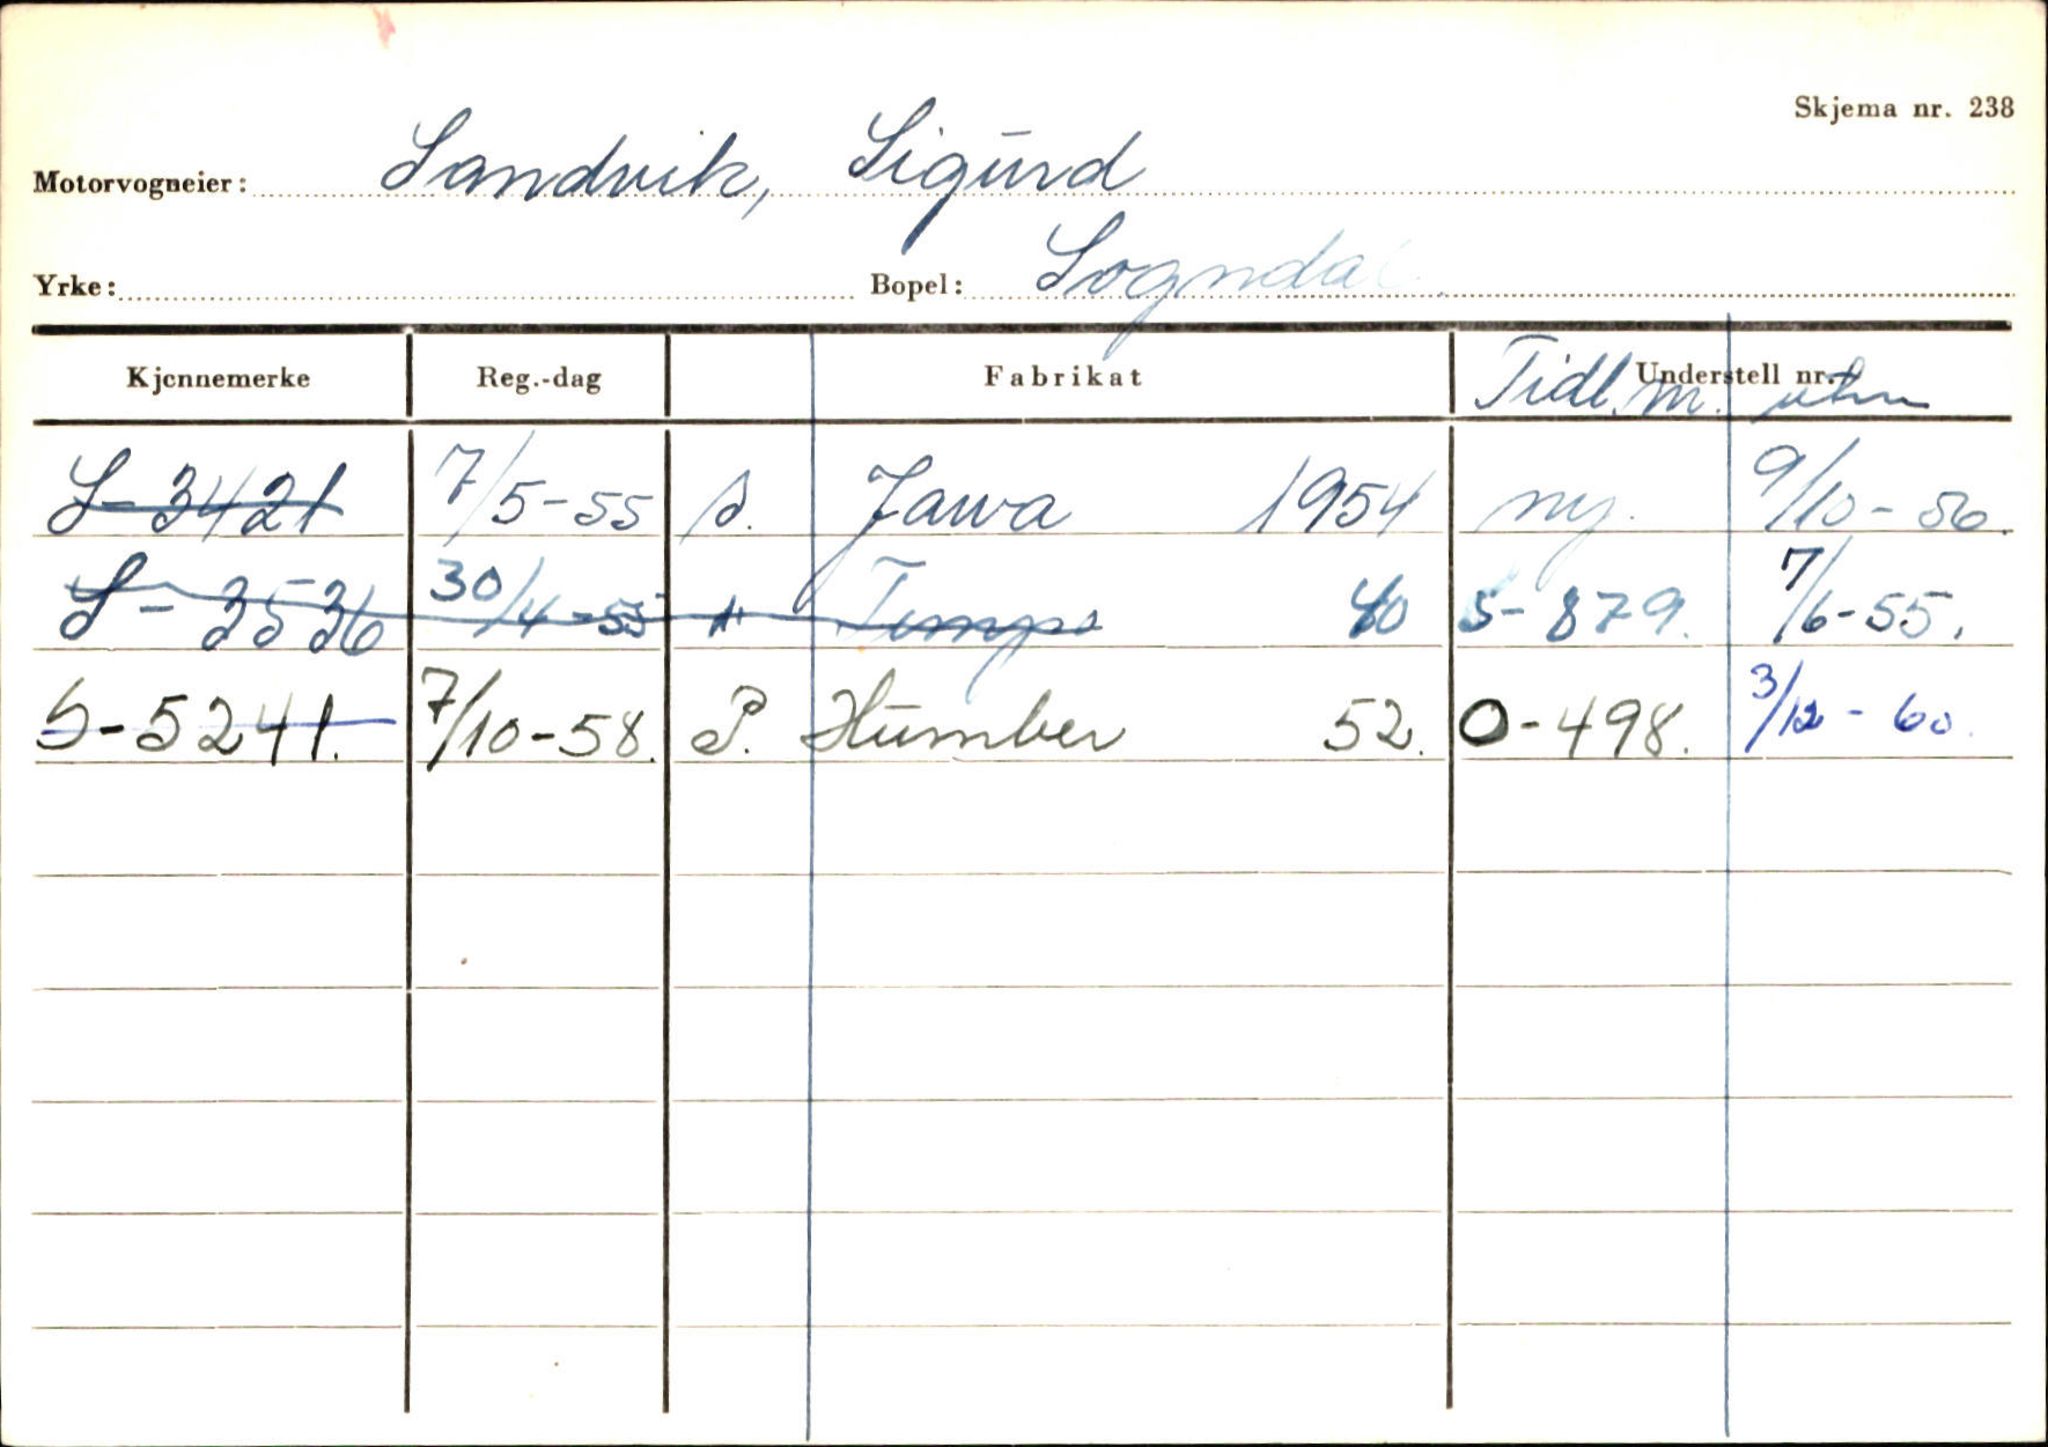 Skjema nr. 238
Motorvogneier: Sandvik, Sigurd
Yrke: Bopel: Sogndal.
Kjennemerke Reg.-dag Fabrikat Understell nr. Tidl. m. utm
S-3421 7/5-55 s. Jawa 1954 ny. 9/10-56.
S-3536 30/4-55 Tempo 40 S-879. 7/6-55.
S-5241. 7/10-58. P. Humber 52. O-498. 3/12-60.